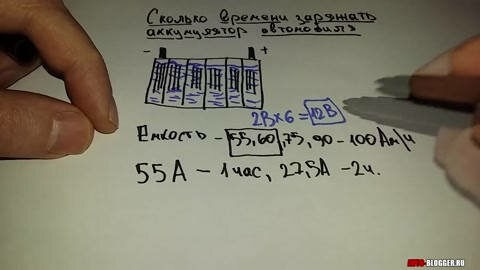 Сколько времени заряжать
аккумулятор автомобиля
- +
2В×6=12В
Емкость - 55,60,75,90-100Ам/ч
55А - 1час, 27,5А - 2ч.
AVTO-BLOGGER.RU